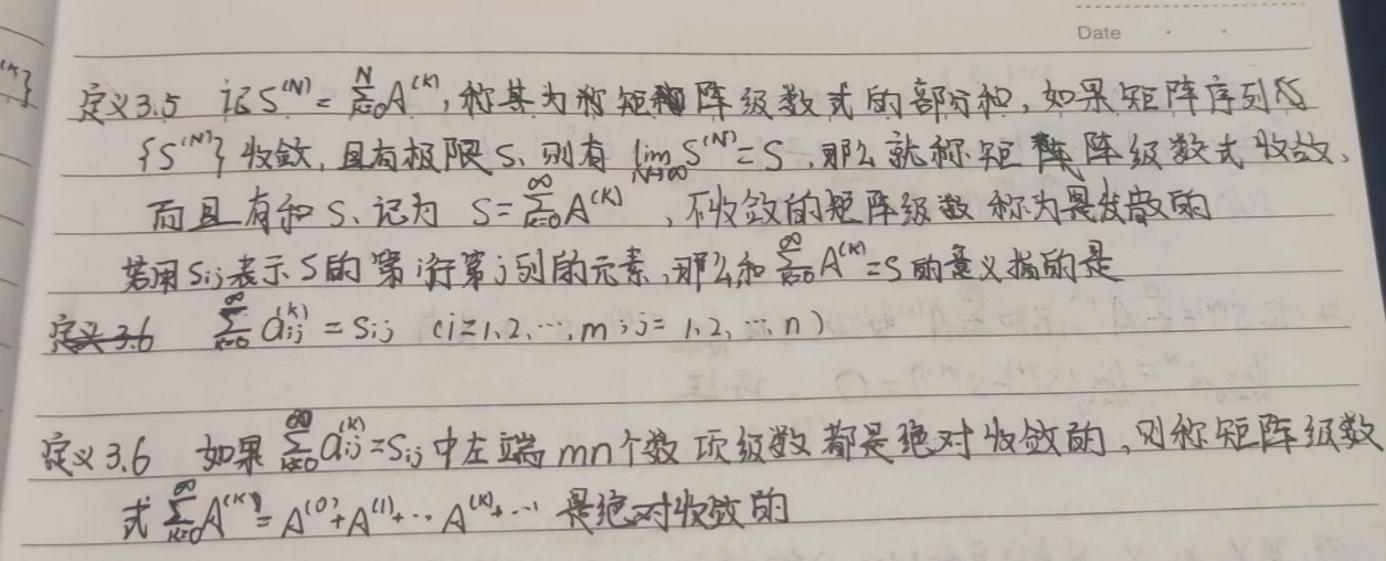 Date
(k)}
定义3.5 记S^{(N)}=\sum_{k=0}^{N}A^{(k)},称其为称矩阵级数式的部分和,如果矩阵序列
{S^{(N)}}收敛,且有极限S,则有\lim_{N→∞}S^{(N)}=S,那么就称矩阵级数式收敛、
而且有和S、记为 S=\sum_{k=0}^{∞}A^{(k)},不收敛的矩阵级数称为是发散的
若用S_{ij}表示S的第i行第j列的元素,那么和\sum_{k=0}^{∞}A^{(k)}=S的意义指的是
定义3.6 \sum_{k=0}^{∞}a_{ij}^{(k)}=S_{ij} (i=1,2,…,m;j=1,2,…,n)
定义3.6 如果\sum_{k=0}^{∞}a_{ij}^{(k)}=S_{ij}中左端mn个数项级数都是绝对收敛的,则称矩阵级数
式\sum_{k=0}^{∞}A^{(k)}=A^{(0)}+A^{(1)}+…A^{(k)}+…是绝对收敛的